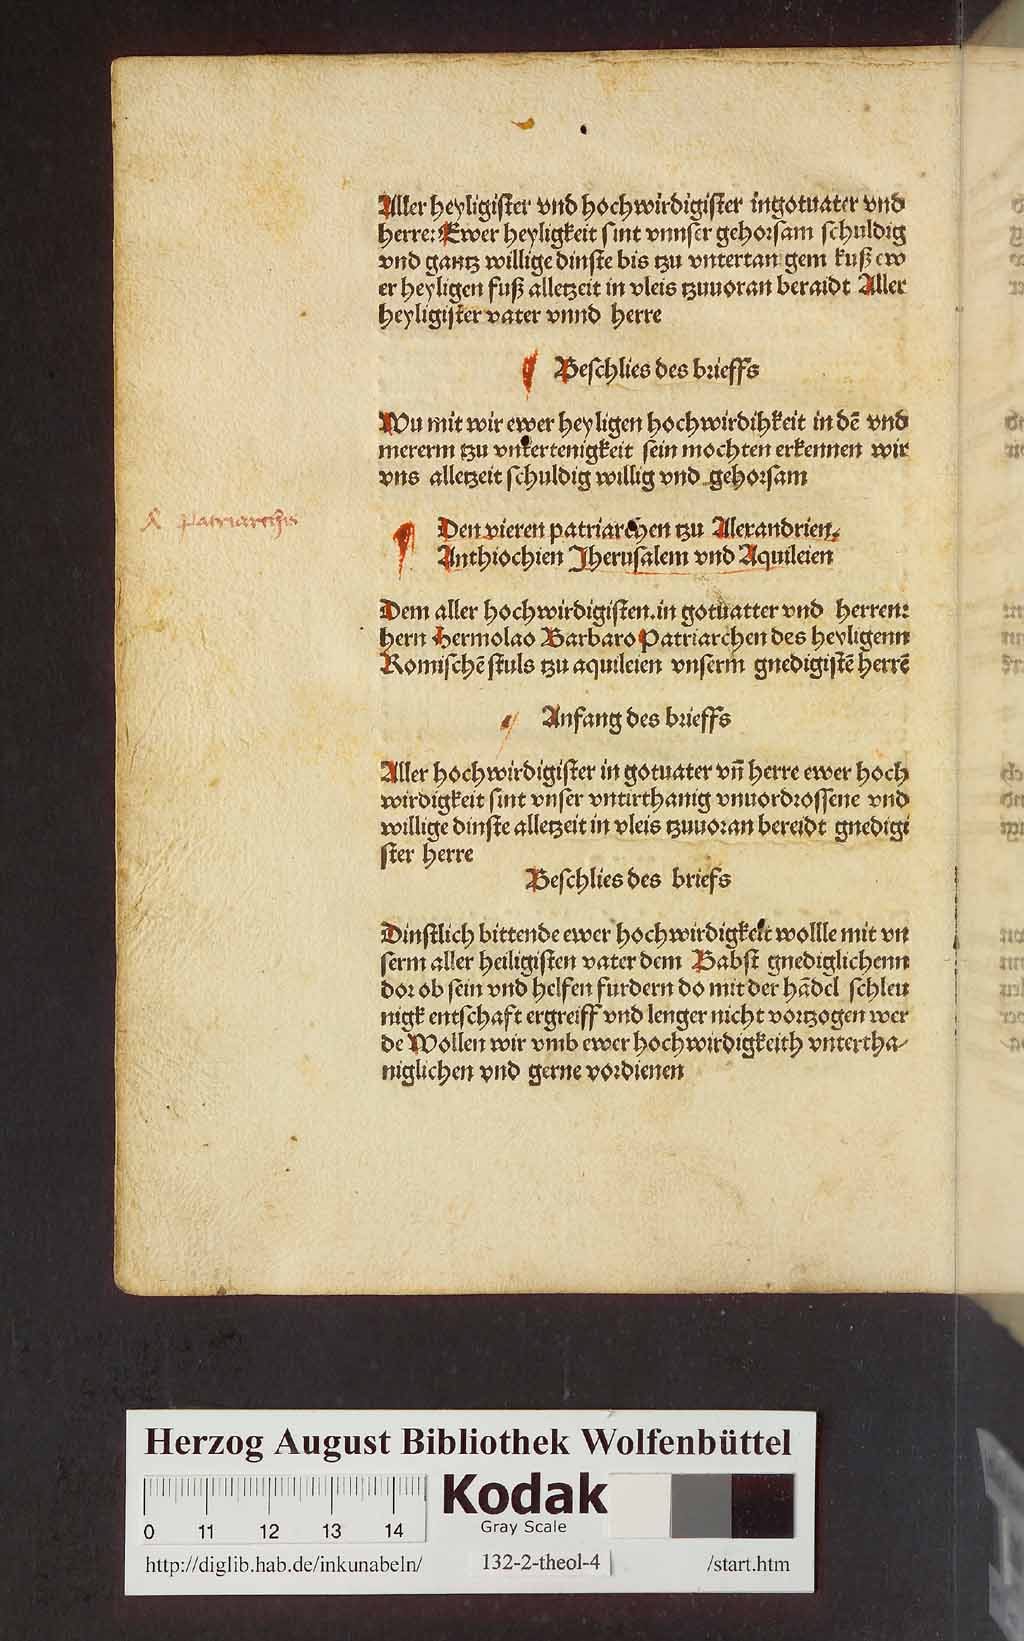 Aller heyligister vnd hochwirdigister ingotuater vnd
herre: Ewer heyligkeit sint vnnser gehorsam schuldig
vnd gantz willige dinste bis tzu vntertan gem kuß ew
er heyligen fuß alletzeit in vleis tzuuoran beraidt Aller
heyligister vater vnnd herre
Beschlies des brieffs
Wu mit wir ewer heyligen hochwirdihkeit in dē vnd
mererm tzu vntertenigkeit sein mochten erkennen wir
vns alletzeit schuldig willig vnd gehorsam
patriarchis
Den vieren patriarchen tzu Alexandrien.
Anthiochien Jherusalem vnd Aquileien
Dem aller hochwirdigisten.in gotuatter vnd herren:
hern Hermolao Barbaro Patriarchen des heyligenn
Romischē stuls tzu aquileien vnserm gnedigistē herrē
Anfang des brieffs
Aller hochwirdigister in gotuater vn̄ herre ewer hoch
wirdigkeit sint vnser vntirthanig vnuordrossene vnd
willige dinste alletzeit in vleis tzuuoran bereidt gnedigi
ster herre
Beschlies des briefs
Dinstlich bittende ewer hochwirdigkeit wollle mit vn
serm aller heiligisten vater dem Babst gnediglichenn
dor ob sein vnd helfen furdern do mit der hādel schleu
nigk entschaft ergreiff vnd lenger nicht vortzogen wer
de Wollen wir vmb ewer hochwirdigkeith vntertha-
niglichen vnd gerne vordienen
Herzog August Bibliothek Wolfenbüttel
Kodak
Gray Scale
0 11 12 13 14
http://diglib.hab.de/inkunabeln/ 132-2-theol-4 /start.htm